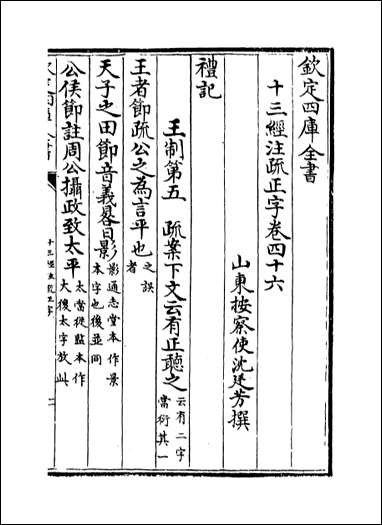 欽定四庫全書
十三經注疏正字卷四十六
山東按察使沈廷芳撰
禮記
王制第五 疏案下文云有正聽之云有二字當衍其一
王者節疏公之為言平也之誤者
天子之田節音義畧日影影通志堂本作景本字也後並同
公侯節註周公攝政致太平太當從監本作大後太字放此
十三經注疏正字
二